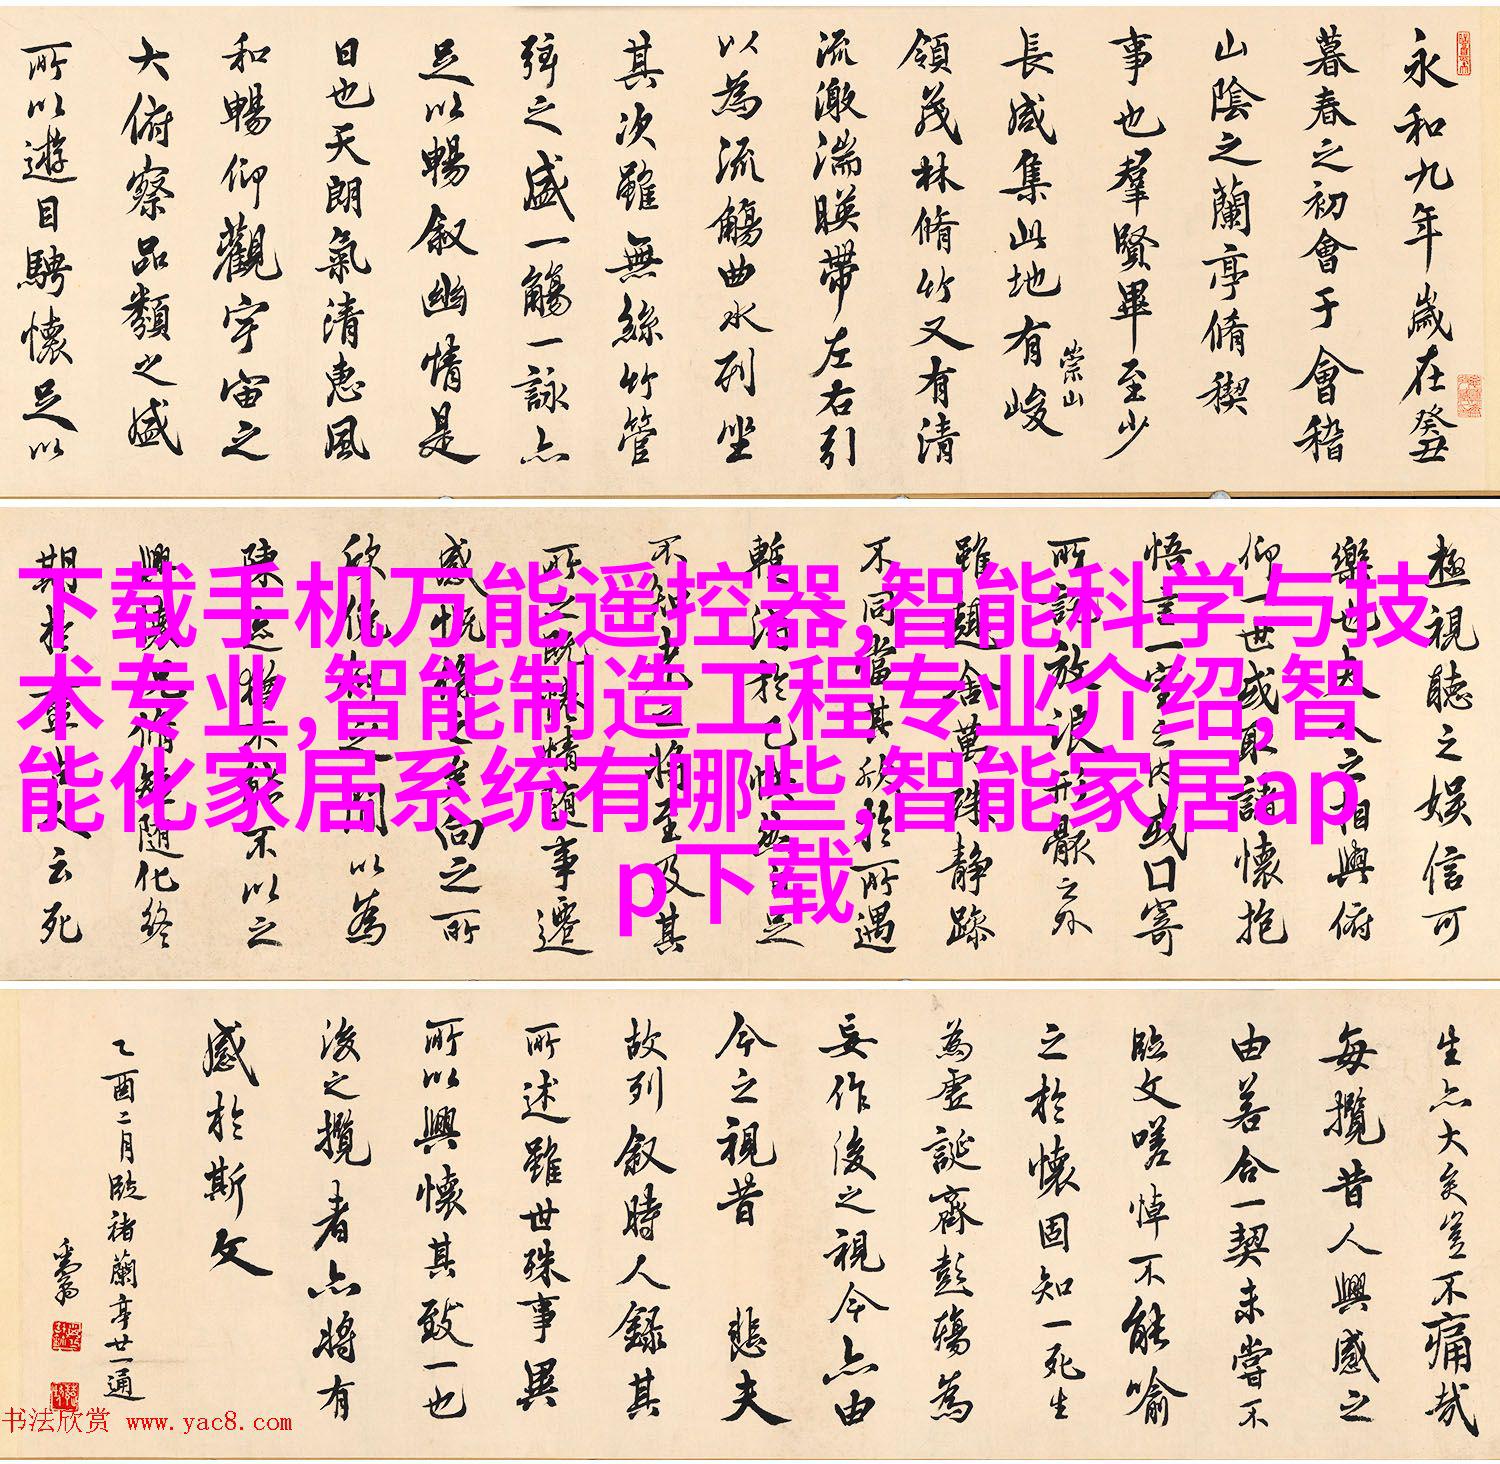 永和九年歲在癸丑
暮春之初會于會稽
山陰之蘭亭脩稧
事也羣賢畢至少
長咸集此地有峻
崇山
領茂林脩竹又有清
流激湍暎帶左右引
以為流觴曲水列坐
其次雖無絲竹管
弦之盛一觴一詠亦
足以暢叙幽情是
日也天朗氣清惠風
和暢仰觀宇宙之
大俯察品類之盛
所以遊目騁懷足以
極視聽之娛信可
樂也夫人之相與俯
仰一世或取諸懷抱
悟言一室之內或口寄
所託放浪形骸之外
雖趣舍萬殊静躁
不同當其欣於所遇
暫得於己怏然自足
不知老之將至及其
所之既惓情隨事遷
感慨係之矣向之所
欣俛仰之間以為
陳迹猶不能不以之
興懷況脩短隨化終
期於盡古人云死
下载手机万能遥控器,智能科学与技
术专业,智能制造工程专业介绍,智
能化家居系统有哪些,智能家居ap
p下载
生亦大矣豈不痛哉
每攬昔人興感之
由若合一契未嘗不
臨文嗟悼不能喻
之於懷固知一死生
為虛誕齊彭殤為
妄作後之視今亦由
今之視昔 悲夫
故列叙時人錄其
所述雖世殊事異
所以興懷其致一也
後之攬者亦將有
感於斯文
乙酉二月臨褚蘭亭廿一通
书法欣赏 www.yac8.com